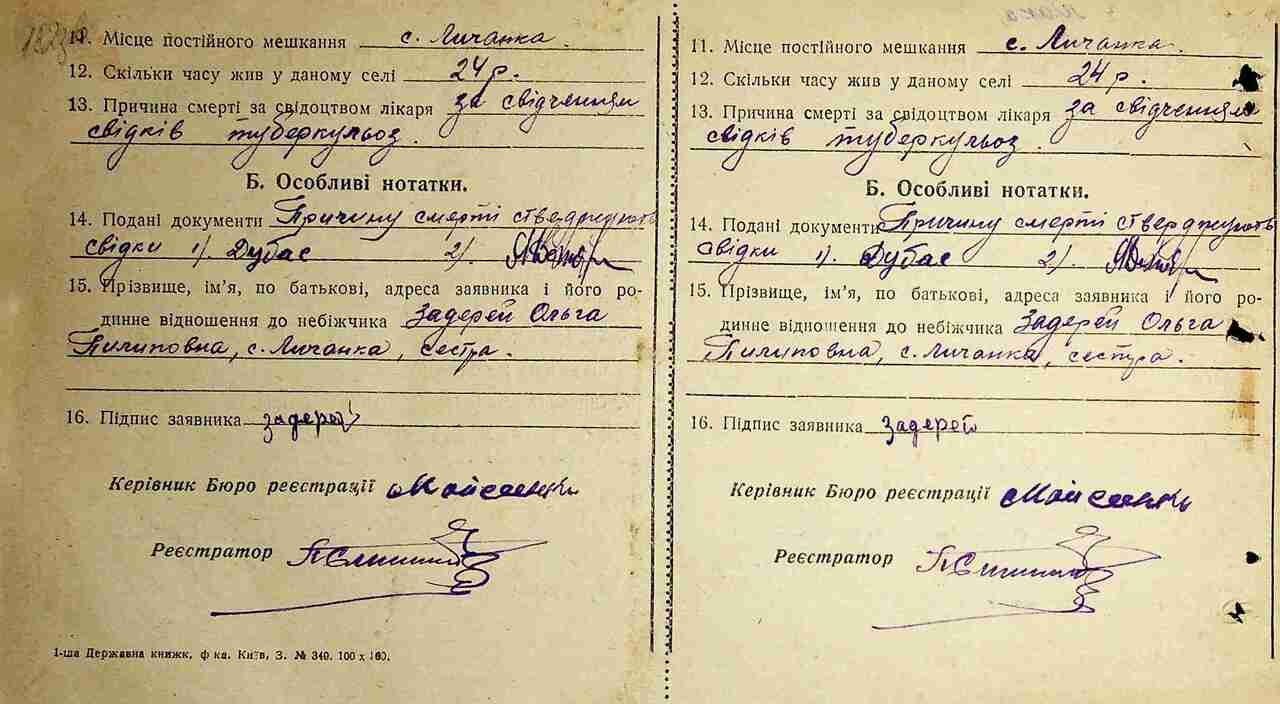 11. Місце постійного мешкання с. Личанка.
12. Скільки часу жив у даному селі 24 р.
13. Причина смерті за свідоцтвом лікаря за свідченням
свідків туберкульоз.
Б. Особливі нотатки.
14. Подані документи Причину смерті стверджують
свідки 1). Дубас 2).
15. Прізвище, ім'я, по батькові, адреса заявника і його ро-
динне відношення до небіжчика Задерей Ольга
Пилиповна, с. Личанка, сестра.
16. Підпис заявника Задерей
Керівник Бюро реєстрації Мойсеенко
Реєстратор
1-ша Державна книжк. ф-ка. Київ, З. № 340. 100 х 160.
11. Місце постійного мешкання с. Личанка.
12. Скільки часу жив у даному селі 24 р.
13. Причина смерті за свідоцтвом лікаря за свідченням
свідків туберкульоз.
Б. Особливі нотатки.
14. Подані документи Причину смерті стверджують
свідки 1). Дубас 2).
15. Прізвище, ім'я, по батькові, адреса заявника і його ро-
динне відношення до небіжчика Задерей Ольга
Пилиповна, с. Личанка, сестра.
16. Підпис заявника Задерей
Керівник Бюро реєстрації Мойсеенко
Реєстратор